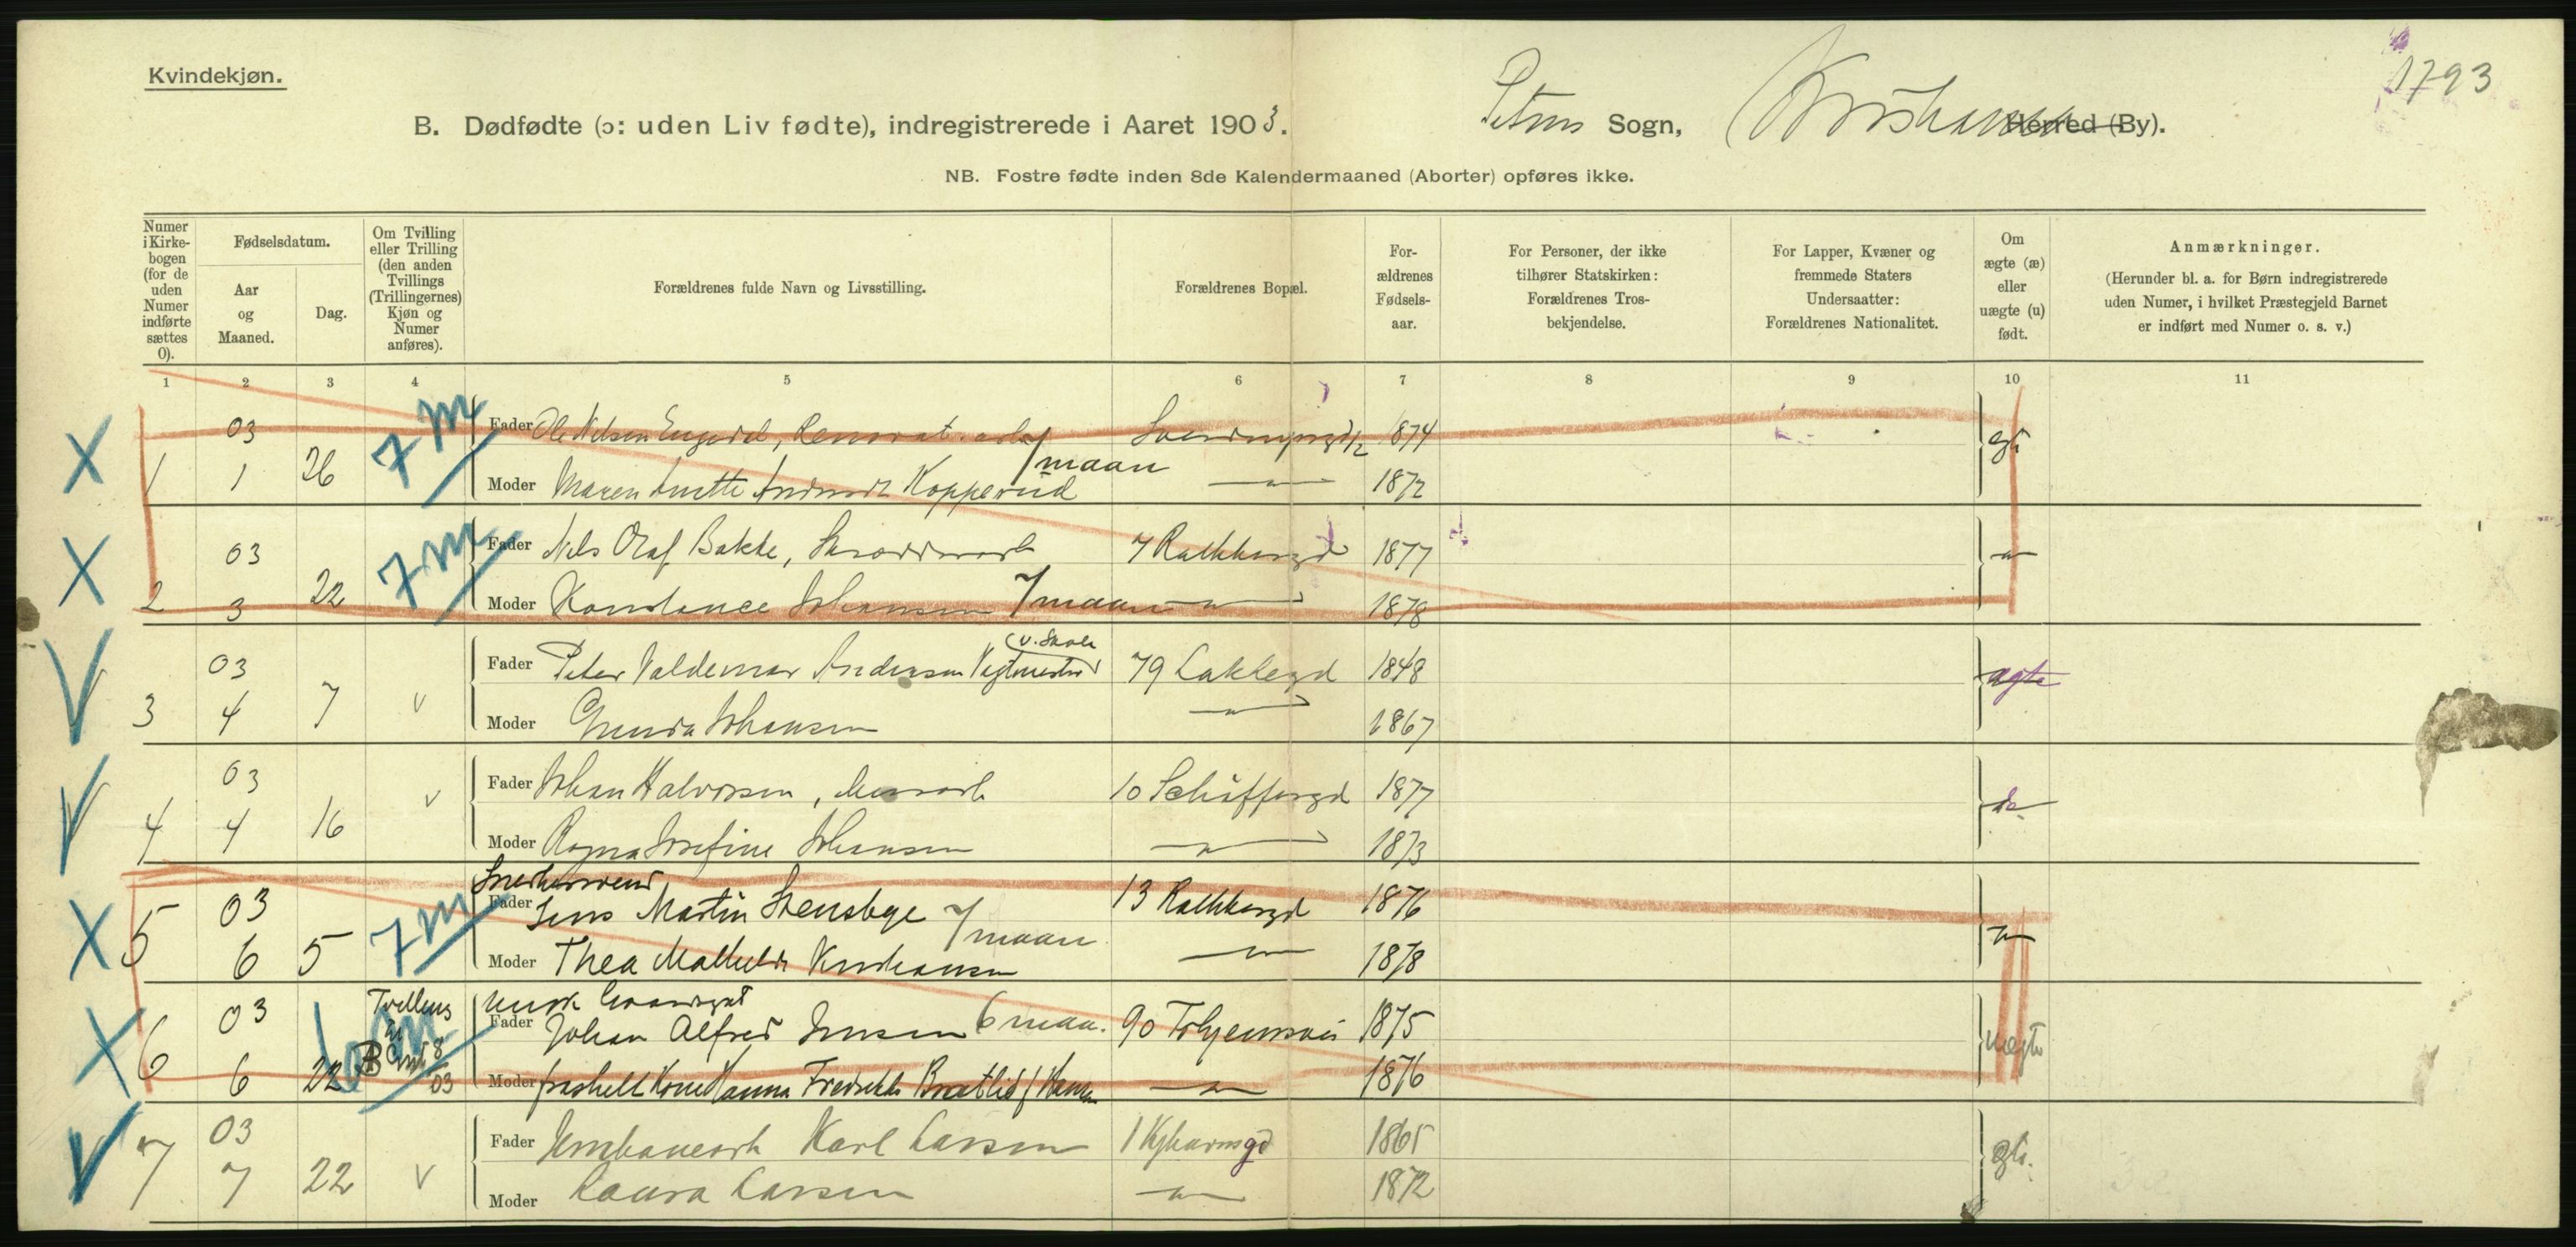 Kvindekjøn.
1793
B. Dødfødte (ɔ: uden Liv fødte), indregistrerede i Aaret 1903. Petrus Sogn, Kristiania Herred (By).
NB. Fostre fødte inden 8de Kalendermaaned (Aborter) opføres ikke.
Numer i Kirkebogen (for de uden Numer indførte sættes 0).
Fødselsdatum.
Aar og Maaned.
Dag.
Om Tvilling eller Trilling (den anden Tvillings (Trillingernes) Kjøn og Numer anføres).
Forældrenes fulde Navn og Livsstilling.
Forældrenes Bopæl.
For-ældrenes Fødsels-aar.
For Personer, der ikke tilhører Statskirken: Forældrenes Tros-bekjendelse.
For Lapper, Kvæner og fremmede Staters Undersaatter: Forældrenes Nationalitet.
Om ægte (æ) eller uægte (u) født.
Anmærkninger.
(Herunder bl. a. for Børn indregistrerede uden Numer, i hvilket Præstegjeld Barnet er indført med Numer o. s. v.)
1 2 3 4 5 6 7 8 9 10 11
X 03 7 m Fader Ole Nilsen Engerd, Renovat. arb 1874
1 1 26 7 maan
Moder Maren Anette Kopperud 1872
X 03 7 m Fader Nils Olaf Bakke, 7 Rathkesgd 1877
2 3 22 Moder Konstance Johansen 7 maan 1878
V 03 (v. Skole
Fader Peter Valdemar Andersen Vagtmester 79 Lakkegd 1848 ægte
3 4 7 v Moder Johansen 1867
V 03 Fader Johan Halvorsen, 10 Schiffersgd 1877 do
4 4 16 v Moder Ragna Josefine Johansen 1873
Snedkersvend
X 5 03 7 m Fader Jens Martin Stensbye 7 maan 13 Rathkesgd 1876
6 5 Moder Thea Mathilde 1878
X 6 03 Tvilling 6 m Fader Johan Alfred Jensen 6 maa. 90 1875 uægte
6 22 B 8 03 Moder fraskilt Kone Hanna Fredrikke Bratlid f. Hansen 1876
V 03 Fader Karl Larsen 1 1865
7 7 22 v Moder Laura Larsen 1872